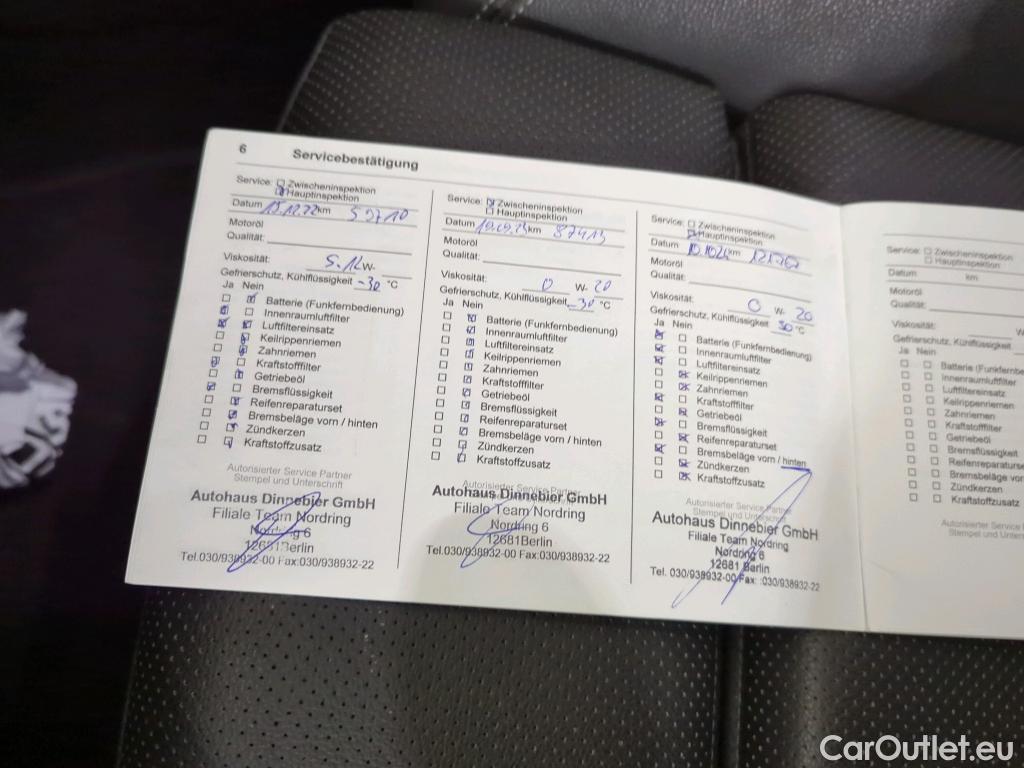 6 Servicebestätigung
Service: Zwischeninspektion
Hauptinspektion
Datum 15.12.22 km 59710
Motoröl
Qualität:
Viskosität: W-
Gefrierschutz, Kühlflüssigkeit -30 °C
Ja Nein
Batterie (Funkfernbedienung)
Innenraumluftfilter
Luftfiltereinsatz
Keilrippenriemen
Zahnriemen
Kraftstofffilter
Getriebeöl
Bremsflüssigkeit
Reifenreparaturset
Bremsbeläge vorn / hinten
Zündkerzen
Kraftstoffzusatz
Autorisierter Service Partner
Stempel und Unterschrift
Autohaus Dinnebier GmbH
Filiale Team Nordring
Nordring 6
12681 Berlin
Tel.030/938932-00 Fax:030/938932-22
Service: Zwischeninspektion
Hauptinspektion
Datum km 87413
Motoröl
Qualität:
Viskosität: 0 W- 20
Gefrierschutz, Kühlflüssigkeit -30 °C
Ja Nein
Batterie (Funkfernbedienung)
Innenraumluftfilter
Luftfiltereinsatz
Keilrippenriemen
Zahnriemen
Kraftstofffilter
Getriebeöl
Bremsflüssigkeit
Reifenreparaturset
Bremsbeläge vorn / hinten
Zündkerzen
Kraftstoffzusatz
Autorisierter Service Partner
Autohaus Dinnebier GmbH
Filiale Team Nordring
Nordring 6
12681Berlin
Tel.030/938932-00 Fax:030/938932-22
Service: Zwischeninspektion
Hauptinspektion
Datum km
Motoröl
Qualität:
Viskosität: 0 W- 20
Gefrierschutz, Kühlflüssigkeit 30 °C
Ja Nein
Batterie (Funkfernbedienung)
Innenraumluftfilter
Luftfiltereinsatz
Keilrippenriemen
Zahnriemen
Kraftstofffilter
Getriebeöl
Bremsflüssigkeit
Reifenreparaturset
Bremsbeläge vorn / hinten
Zündkerzen
Kraftstoffzusatz
Autorisierter Service Partner
Stempel und Unterschrift
Autohaus Dinnebier GmbH
Filiale Team Nordring
Nordring 6
12681 Berlin
Tel. 030/938932-00 Fax: :030/938932-22
Service: Zwischeninspektion
Hauptinspektion
Datum km
Motoröl
Qualität:
Viskosität: W
Gefrierschutz, Kühlflüssigkeit
Ja Nein
Batterie (Funkfernbe
Innenraumluftfilter
Luftfiltereinsatz
Keilrippenriemen
Zahnriemen
Kraftstofffilter
Getriebeöl
Bremsflüssigkeit
Reifenreparaturse
Bremsbeläge vorn
Zündkerzen
Kraftstoffzusatz
Autorisierter Service
Stempel und Unters
CarOutlet.eu